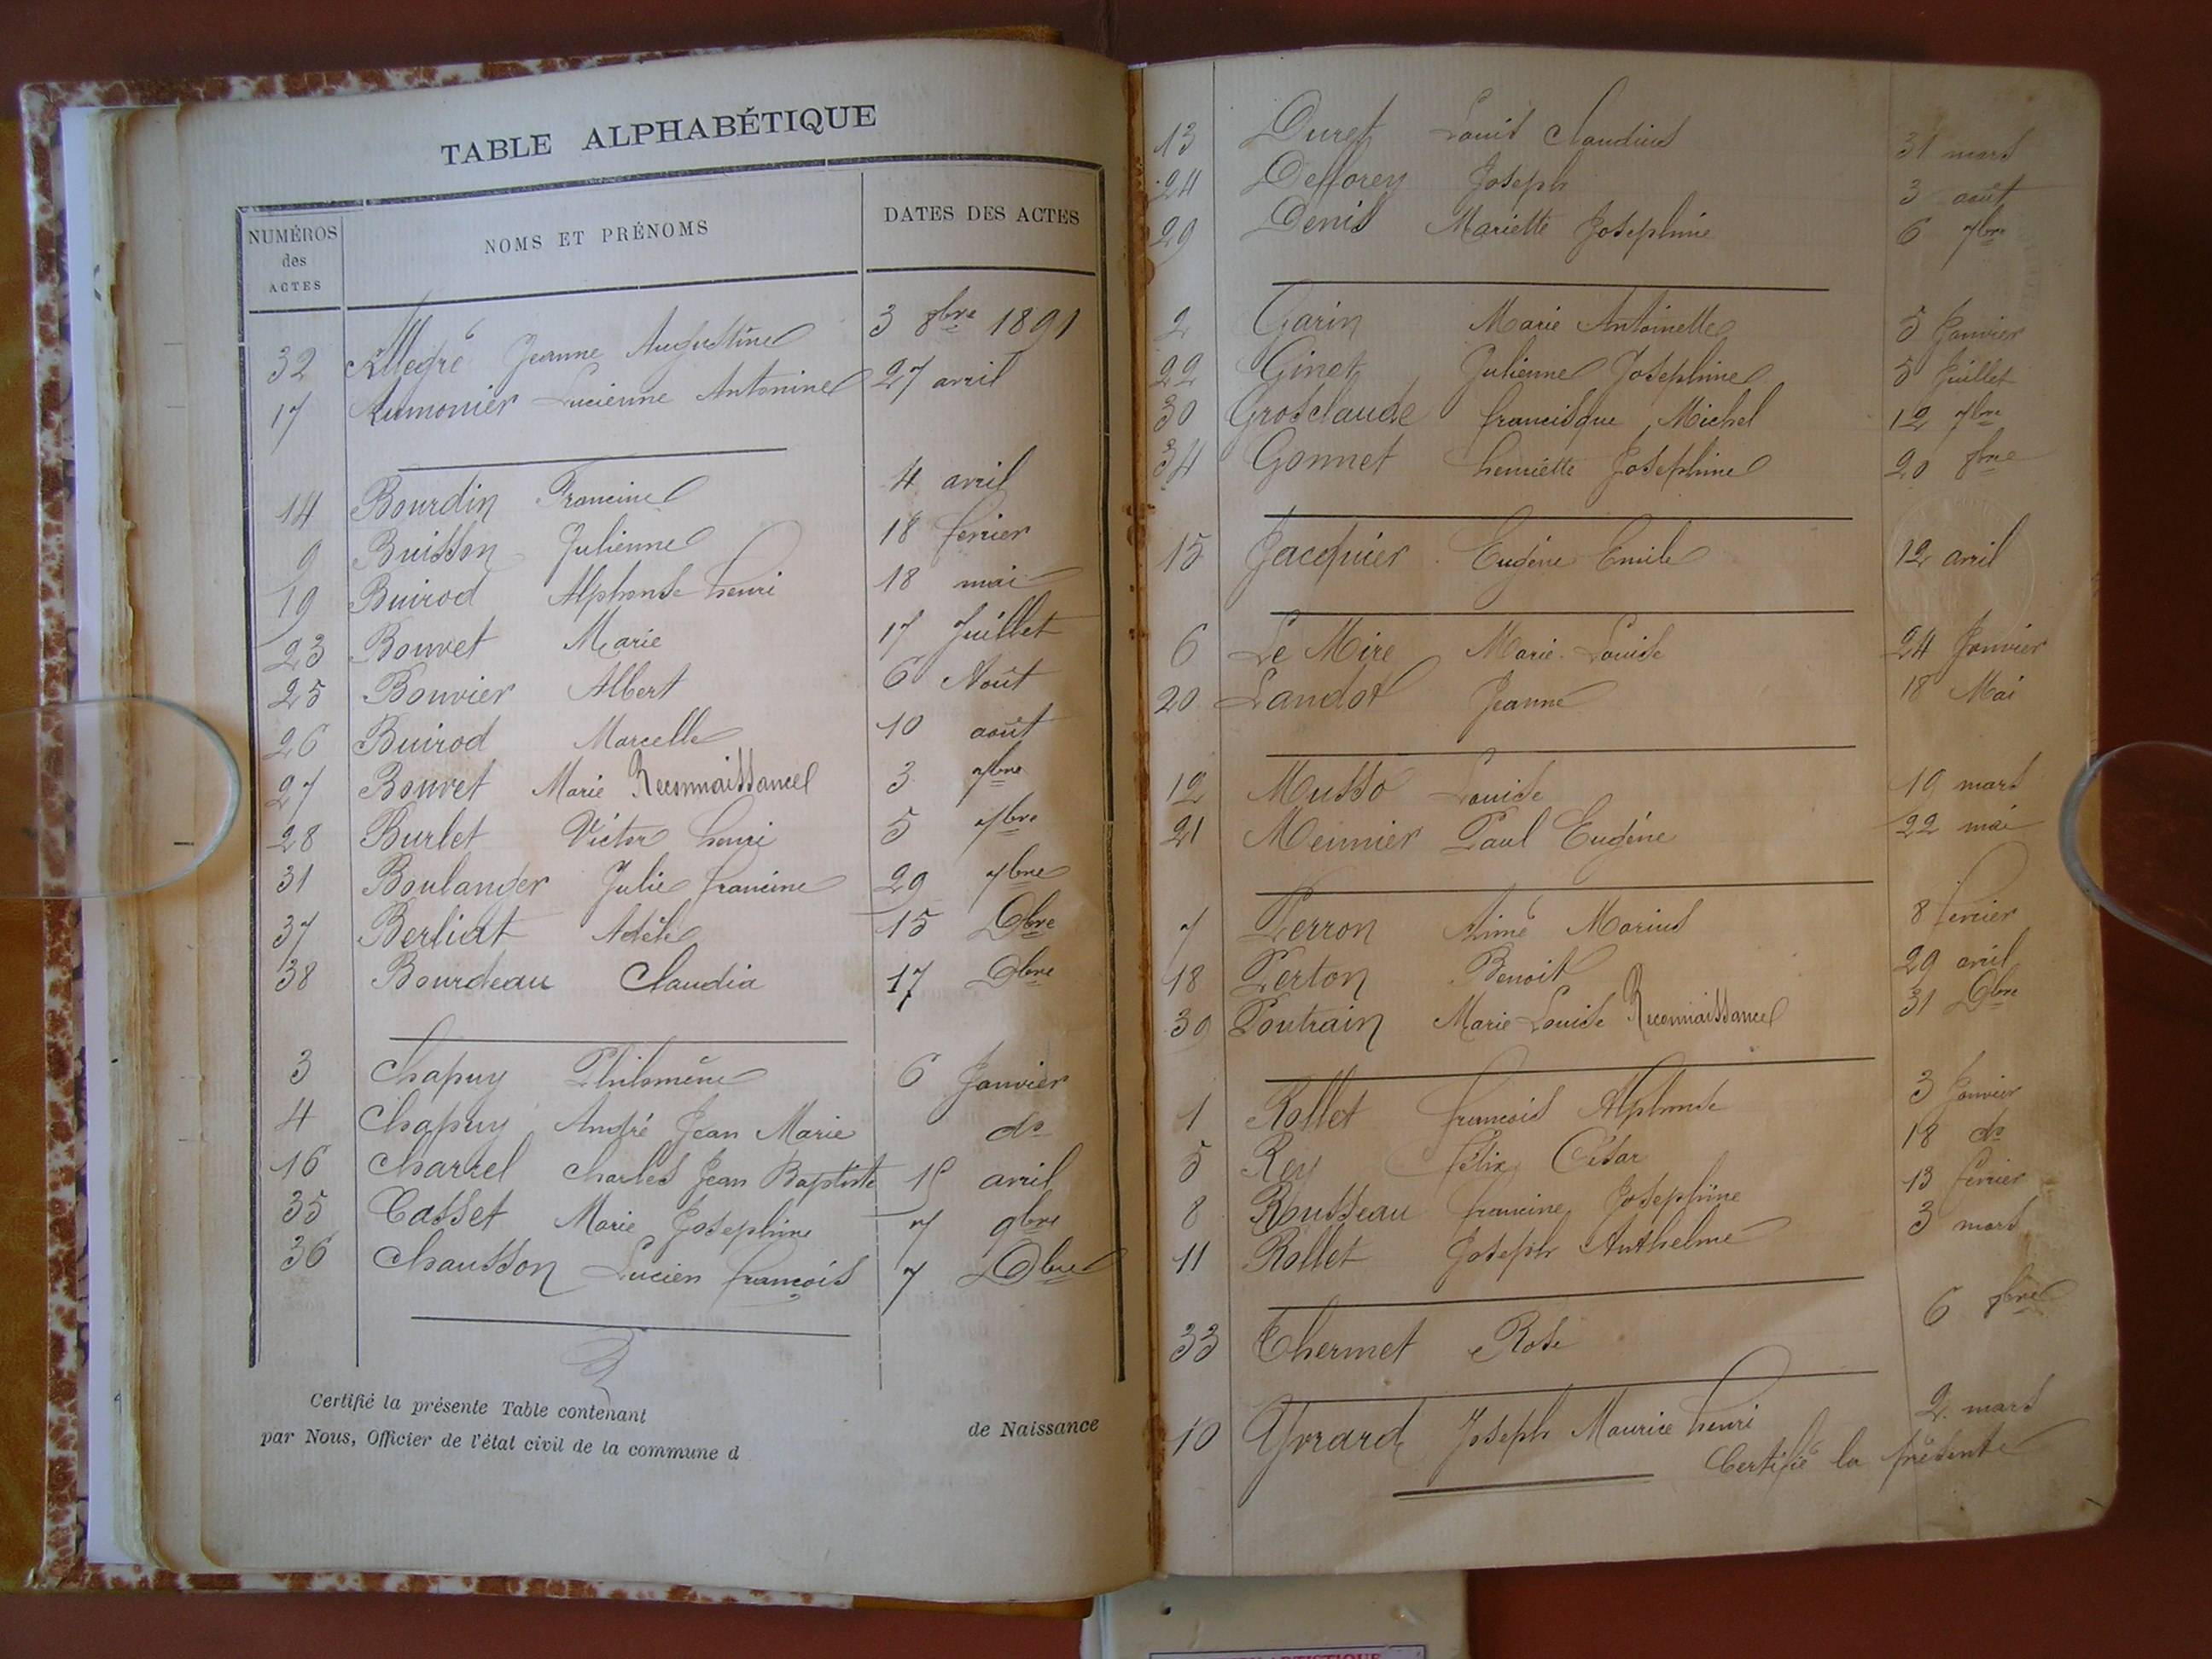 TABLE ALPHABÉTIQUE
NUMÉROS des ACTES NOMS ET PRÉNOMS DATES DES ACTES
32 Allegré Jeanne Augustine 3 8bre 1891
17 Aumonier Lucienne Antonine 27 avril
14 Bourdin Francine 4 avril
9 Buisson Julienne 18 fevrier
19 Buirod Alphonse henri 18 mai
23 Bouvet Marie 17 Juillet
25 Bouvier Albert 6 Août
26 Buirod Marcelle 10 août
27 Bouvet Marie Reconnaissance 3 7bre
28 Burlet Victor henri 5 7bre
31 Boulanger Julie francine 29 7bre
37 Berliat Adèle 15 Dbre
38 Bourdeau Claudia 17 Dbre
3 Chapuy Philomène 6 Janvier
4 Chapuy André Jean Marie do
16 Charrel Charles Jean Baptiste 15 avril
35 Casset Marie Josephine 7 9bre
36 Chausson Lucien françois 7 Dbre
Certifié la présente Table contenant de Naissance
par Nous, Officier de l'état civil de la commune d
13 Duret Louis Claudius 31 mars
24 Deflorey Joseph 3 août
29 Denis Mariette Josephine 6 7bre
2 Garin Marie Antoinette 5 Janvier
22 Ginet Julienne Josephine 5 Juillet
30 Grosclaude francisque Michel 12 7bre
34 Gonnet henriette Josephine 20 8bre
15 Jacquier Eugène Emile 12 avril
6 Le Mire Marie Louise 24 Janvier
20 Landot Jeanne 18 Mai
12 Musso Louise 19 mars
21 Meunier Paul Eugène 22 mai
7 Perron Aimé Marius 8 fevrier
18 Perton Benoit 29 avril
39 Poutrain Marie Louise Reconnaissance 31 Dbre
1 Rollet francois Alphonse 3 Janvier
5 Rey félix César 18 do
8 Rousseau francine Josephine 13 fevrier
11 Rollet Joseph Anthelme 3 mars
33 Thermet Rose 6 8bre
10 Yvrard Joseph Maurice henri 2 mars
Certifié la présente